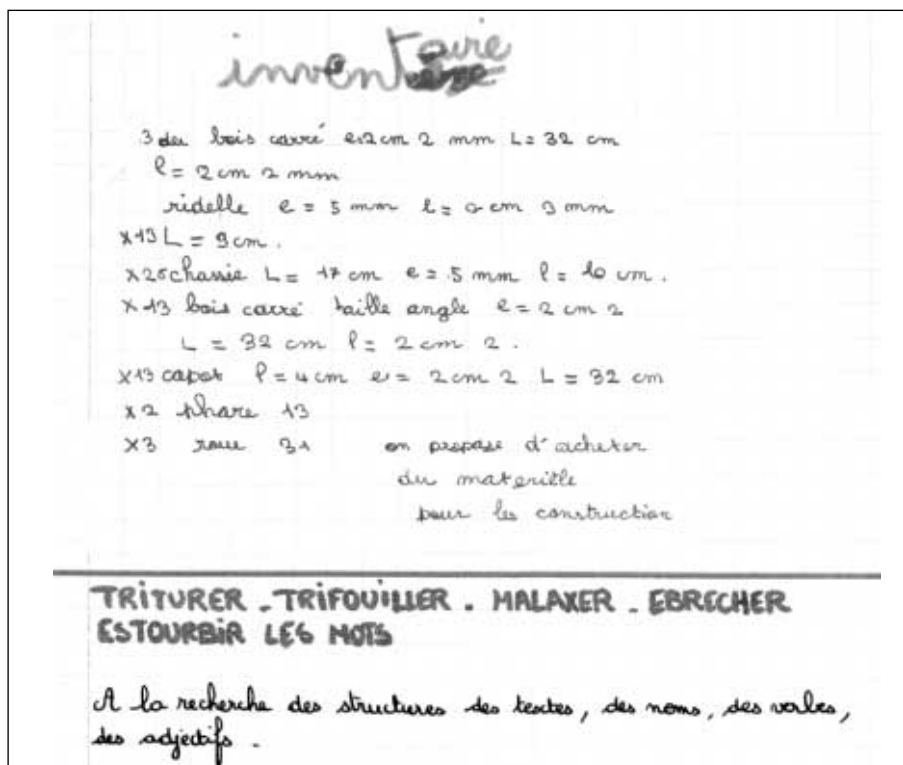 inventaire
3 du bois carré e=2cm 2 mm L= 32 cm
l= 2cm 2 mm
ridelle e = 5 mm l= 2 cm 3 mm
x13 L = 9cm.
x26 chassie L= 17 cm e= 5 mm l= 10 cm.
x13 bois carré taille angle e=2 cm 2
L = 32 cm l= 2 cm 2.
x13 capot l= 4cm e= 2cm 2 L= 32 cm
x2 phare 13
x3 roue 31 on propose d'acheter
du materielle
pour les construction
TRITURER - TRIFOUILLER - MALAXER - EBRECHER
ESTOURBIR LES MOTS
A la recherche des structures des textes, des noms, des verbes,
des adjectifs.